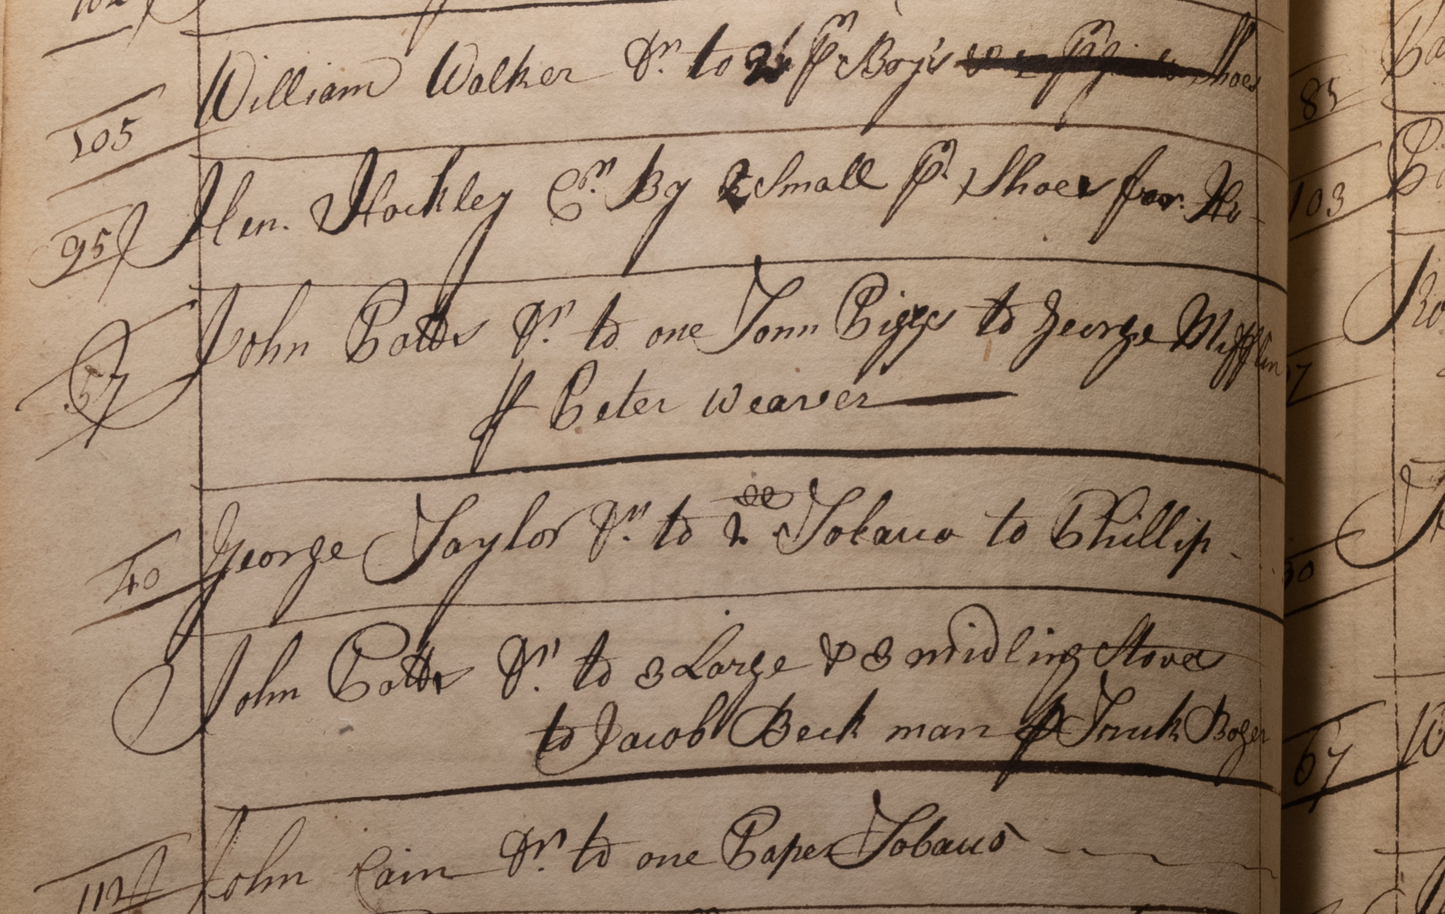 William Walker Dr. to 2 pr Boy's Shoes
105
Hen. Hockley Cr. By 2 Small pr Shoes for Ho-
95
John Potts Dr. to one Tonn Piggs to George Mifflin
57
⅌ Peter Weaver
George Taylor Dr. to 2 lb Tobacco to Phillip
40
John Potts Dr. to 3 Large & 3 midling Stoves
to Jacob Beck man ⅌ Fruk Boger
John Cain Dr. to one Paper Tobacco
112
85
103
67